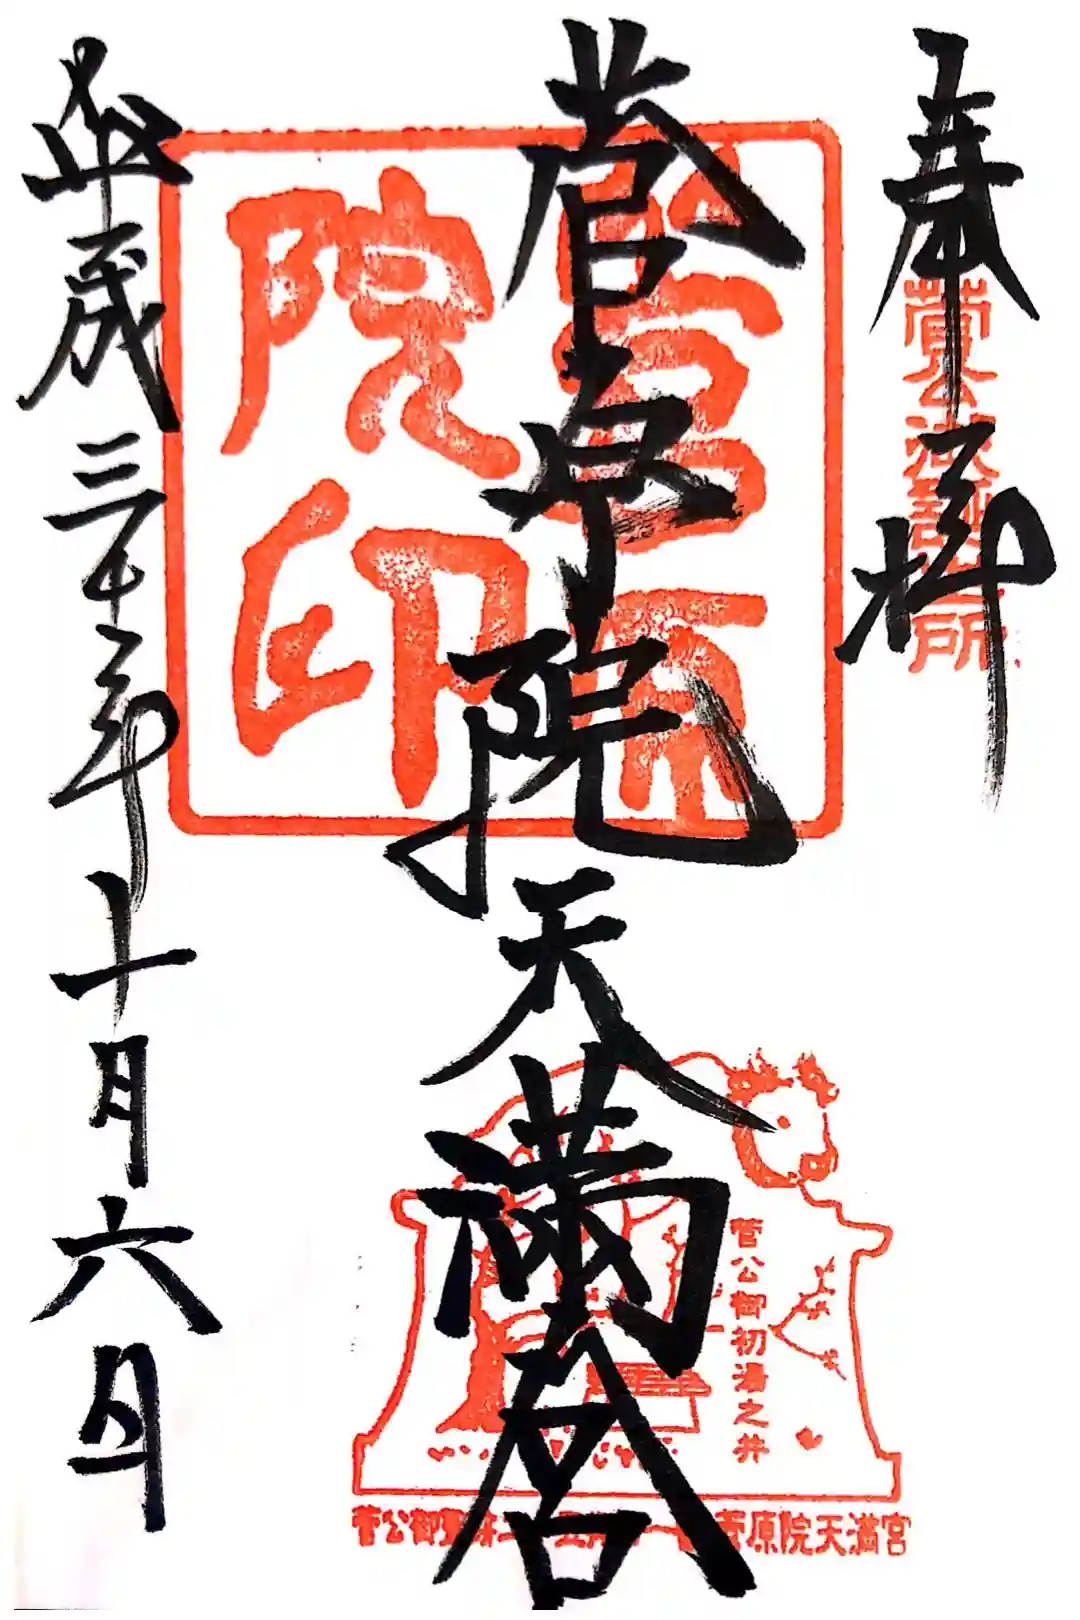 奉拝
菅公御誕生所
菅原院天満宮
菅原院印
平成三十年十月六日
菅公御初湯之井
菅原院天満宮